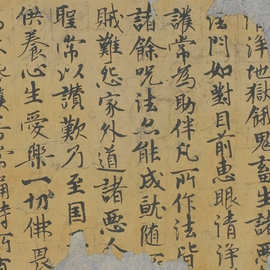 淨地獄餓鬼畜生諸
法門如對目前惠眼清淨
護常為助伴凡所作法皆
諸餘呪法悉能成就随
賊難怨家外道諸惡人
聖常以讚歎乃至国
供養心生愛樂一切佛畏
誦持所